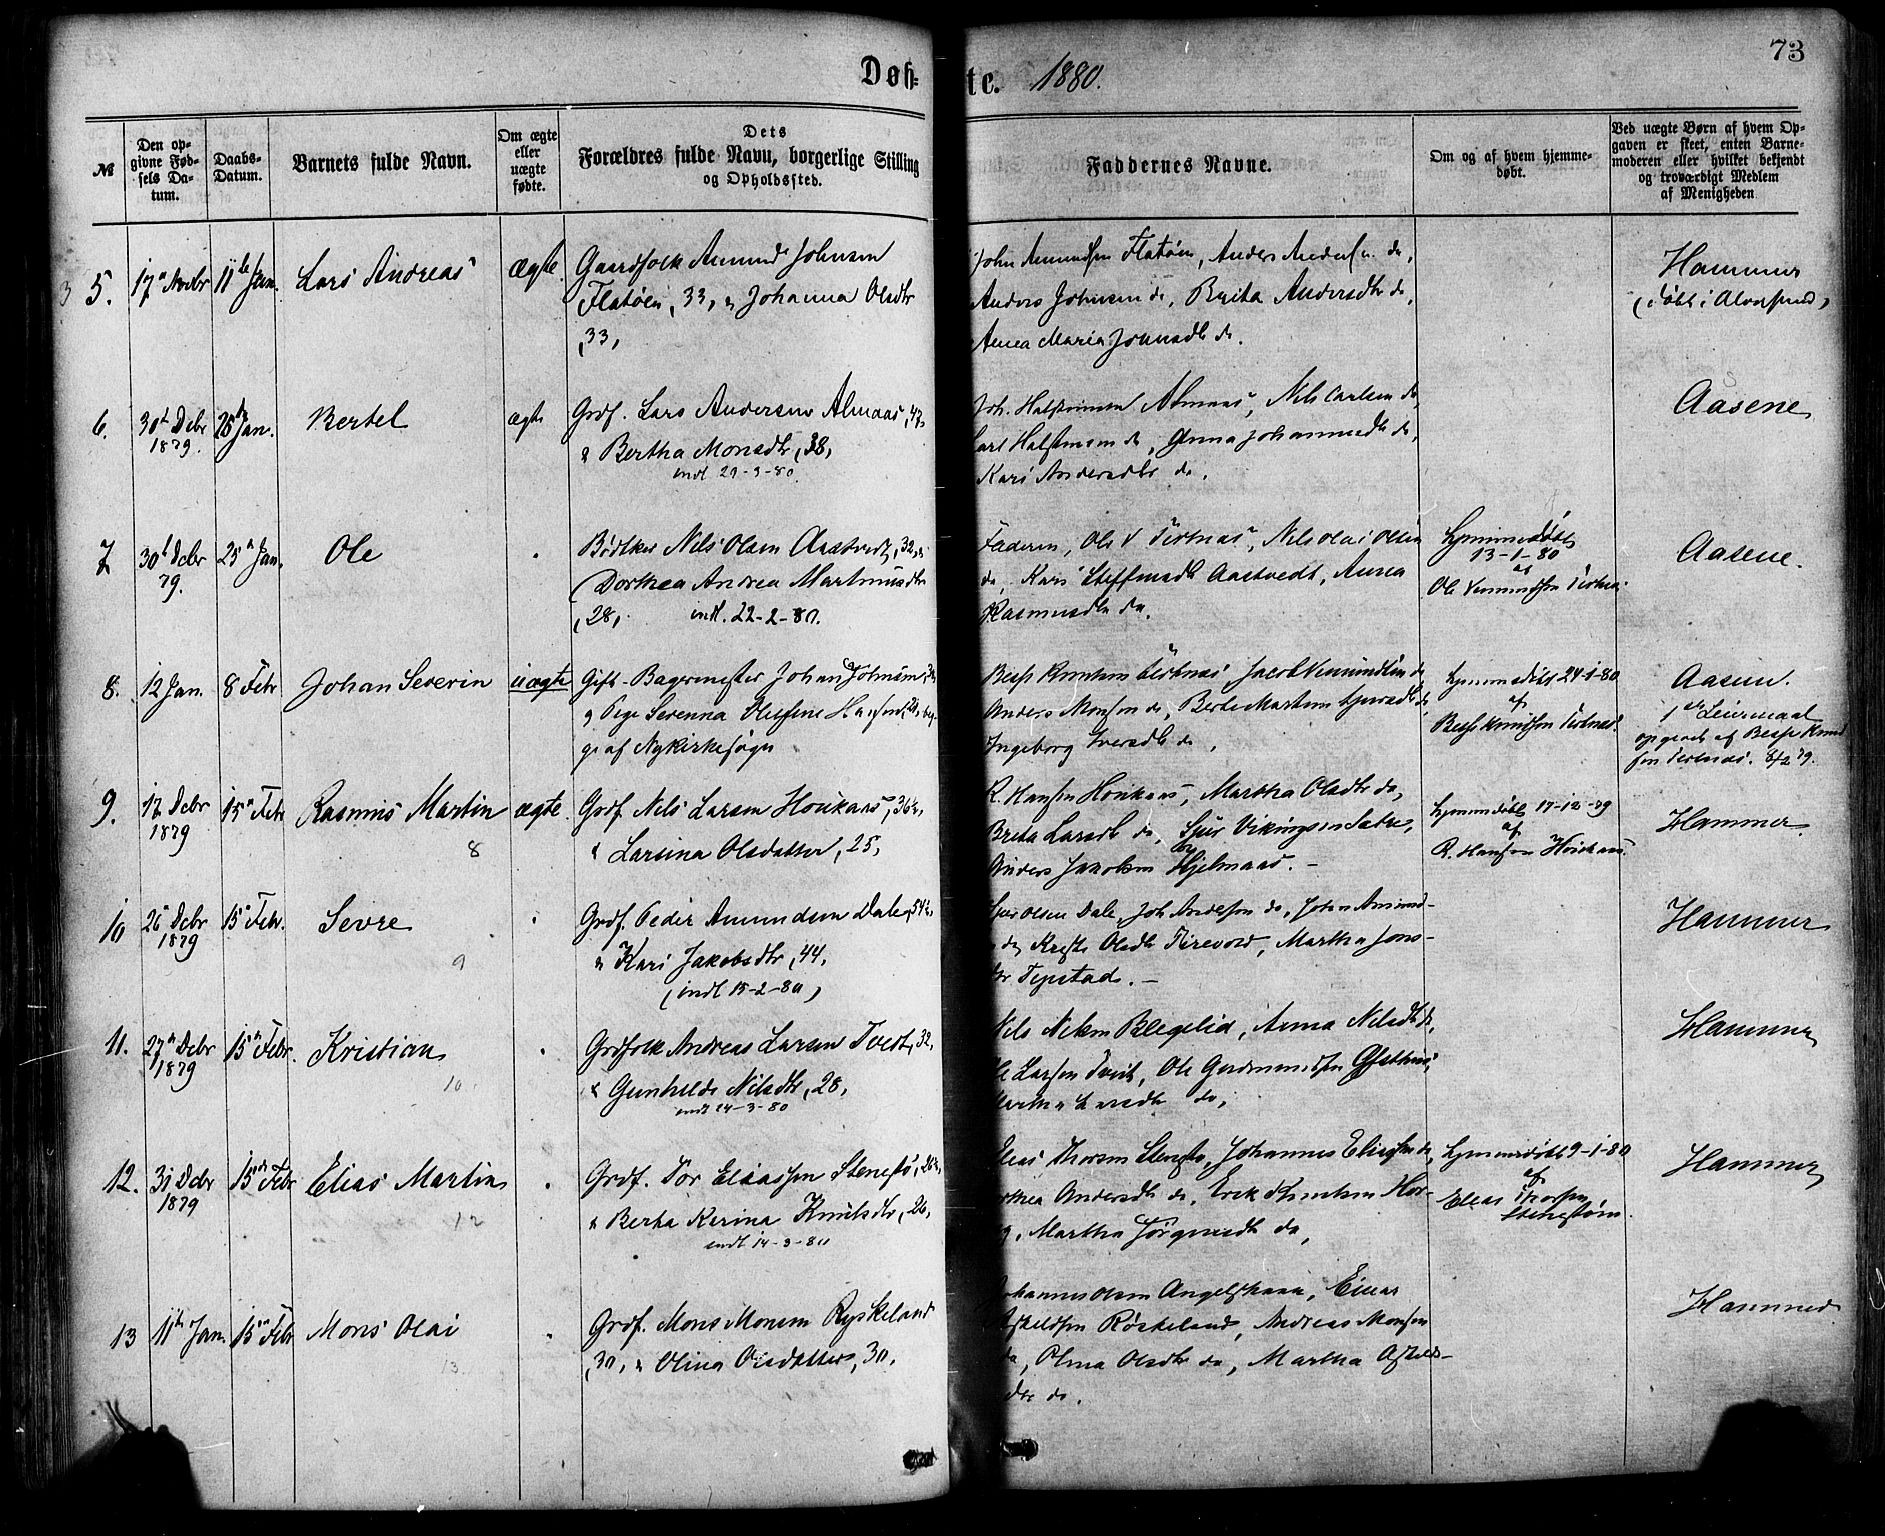 73
Døb-te. 1880.
№
Den opgivne Fødsels Datum.
Daabs-Datum.
Barnets fulde Navn.
Om ægte eller uægte fødte.
Dets Forældres fulde Navn, borgerlige Stilling og Opholdssted.
Faddernes Navne.
Om og af hvem hjemmedøbt.
Ved uægte Børn af hvem Opgaven er skeet, enten Barnemoderen eller hvilket bekjendt og troværdigt Medlem af Menigheden
5. 17 Novbr 11te Jan. Lars Andreas ægte. Gaardfolk Amund Johnsen
Flatøen, 33, & Johanna Olsdtr
33,
John Amundsen Flatøen, Anders Andersen do,
Anders Johnsen do, Brita Andersdtr do,
Anna Maria Johnsdtr do.
Hammer
(døbt i Alversund)
6. 30te Debr 1879. 25de Jan. Bertel ægte Grdf. Lars Andersen Almaas, 42,
& Bertha Monsdtr, 38,
indl 29-3-80.
Joh. Almaas, Nils Carlsen do,
Kari Andersdtr do.
Aasene
7 30te Debr 79. 25de Jan. Ole Bødker Nils Olsen Aastvedt, 32, &
Dorthea Andrea Martinusdtr
28, indl. 22-2-80.
Faderen, Ole V Tertnæs, Nils Olai Olsen
do, Kari Steffensdtr Aastvedt, Anna
Rasmusdtr do.
Hjemmedøbt
13-1-80
af
Ole Vemundsen Tertnæs.
Aasene.
8. 12 Jan. 8 Febr Johan Severin uægte Gift Bagermester Johan Johnsen,
& Pige Serenna Hansen, beg-
ge af Nykirkesogn
Besse Knutsen Tertnæs, Jacob Vemundsen do
Anders Monsen do, Berte Martine
Ingeborg Iversdtr do,
hjemmedøbt 24-1-80
af
Besse Knudsen Tertnæs.
Aasene.
1ste Leiermaal
opgivet af Besse Knud
sen Tertnæs.
9. 12 Debr 1879 15de Febr Rasmus Martin ægte. Grdf. Nils Larsen Houkaas, 36½,
8
& Larsina Olsdatter, 25,
R. Hansen Houkaas, Martha Olsdtr do,
Brita Larsdtr do, Sjur Vikingsen Sætre,
Anders Jakobsen Hjelmaas. -
hjemmedøbt 17-12-79
af
R. Hansen Houkaas.
Hammer.
10 26 Debr 1879 15de Febr. Sevre Grdf. Peder Amundsen Dale, 54½,
9
& Kari Jakobsdtr, 44,
(indl 15-2-80)
Sjur Olsen Dale, Joh. Andersen do, John Amund-
Martha Jons-
Hammer
11. 27de Debr 1879 15de Febr. Kristian Grdfolk Andreas Larsen Tveit, 32,
10
& Gunhilde Nilsdtr, 28,
indl 14-3-80
Nils Nilsen Blegelid, Anna Nilsdtr do,
Larsen Tveit, Ole
Martha Larsdtr do,
Hammer
12. 31 Debr 1879 15de Febr Elias Martin Grdf. Tor Eliassen Stenestø, 26½,
12
& Berta Karina Knutsdtr, 26,
indl 14-3-80
Elias Thorsen Stenestø, Johannes Eliassen do,
Andersdtr do, Erik Knutsen Hor-
Martha Jørgensdtr do,
hjemmedøbt 9-1-80
af
Elias Thorsen
Stenestøen.
Hammer
13 11te Jan. 15de Febr Mons Olai Grdf. Mons Monsen Ryskeland
13.
30, & Olina Olsdatter, 30,
Johannes Olsen Angelskaar, Einar
Røskeland, Andreas Monsen
do, Olina Olsdtr do, Martha
dtr do.
Hammer